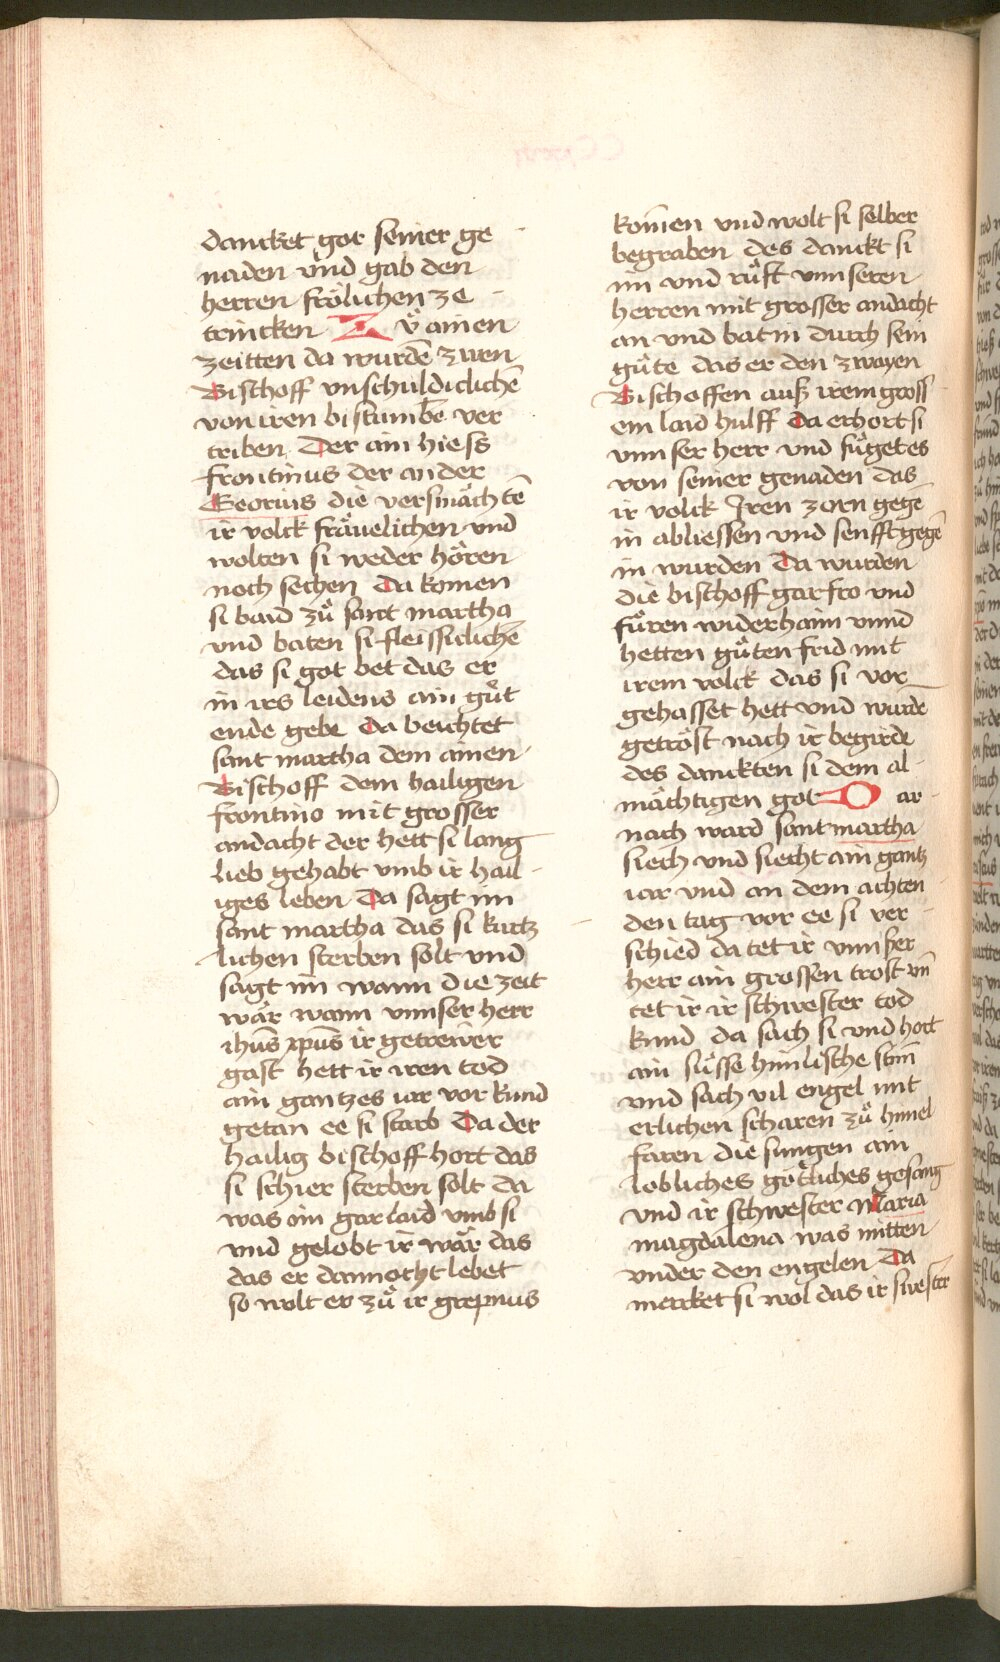 dancket got seiner ge
naden vnd gab den
herren frölichen ze
trincken Zuͦ ainen
zeitten da wurdē zwen
Bischoff vnschuldiclichē
von iren bistumbē ver
triben Der ain hiess
frontinus der ander
Georius die versmächtē
ir volck fräuelichen vnd
wolten si weder hören
noch sechen Da komen
si baid zuͦ sant martha
vnd baten si fleissiclichē
das si got bet das er
in irs leidens ain guͦt
ende gebe Da beichtet
sant martha dem ainen
Bischoff dem hailigen
frontino mit grosser
andacht der hett si lang
lieb gehabt vmb ir hail
iges leben Da sagt im
sant martha das si kurtz
lichen sterben solt vnd
sagt im wann die zeit
wär wann vnnser herr
ihūs xp̄us ir getrewer
gast hett ir iren tod
ain gantzes iar vor kund
getan ee si starb Da der
hailig bischoff hort das
si schier sterben solt da
was im gar laid vmb si
vnd gelobt ir wär das
das er dannocht lebet
so wolt er zuͦ ir grepnus
kom̄en vnd wolt si selber
begraben des danckt si
im vnd ruͦft vnnseren
herren mit grosser andacht
an vnd bat in durch sein
guͤte das er den zwayen
Bischoffen auß irem gross
em laid hulff Da erhort si
vnnser herr vnd fuͤget es
von seiner genaden das
ir volck Iren zorn gegē
in abliessen vnd senfft gegē
in wurden Da wurden
die bischoff gar fro vnd
fuͦren widerhaim vnnd
hetten guͦten frid mit
irem volck das si vor
gehasset hett vnd wurdē
getröst nach ir begirde
des danckten si dem al
mächtigen got Dar
nach ward sant martha
siech vnd siecht ain gantz
iar vnd an dem achten
den tag vor ee si ver
schied da tet ir vnnser
herr ain grossen trost vn̄
tet ir ir schwester tod
kund da sach si vnd hort
ain süsse himlische stim̄
vnd sach vil engel mit
erlichen scharen zuͦ himel
faren die sungen ain
lobliches götliches gesang
vnd ir schwester Maria
magdalena was mitten
vnder den engelen Da
mercket si wol das ir swester